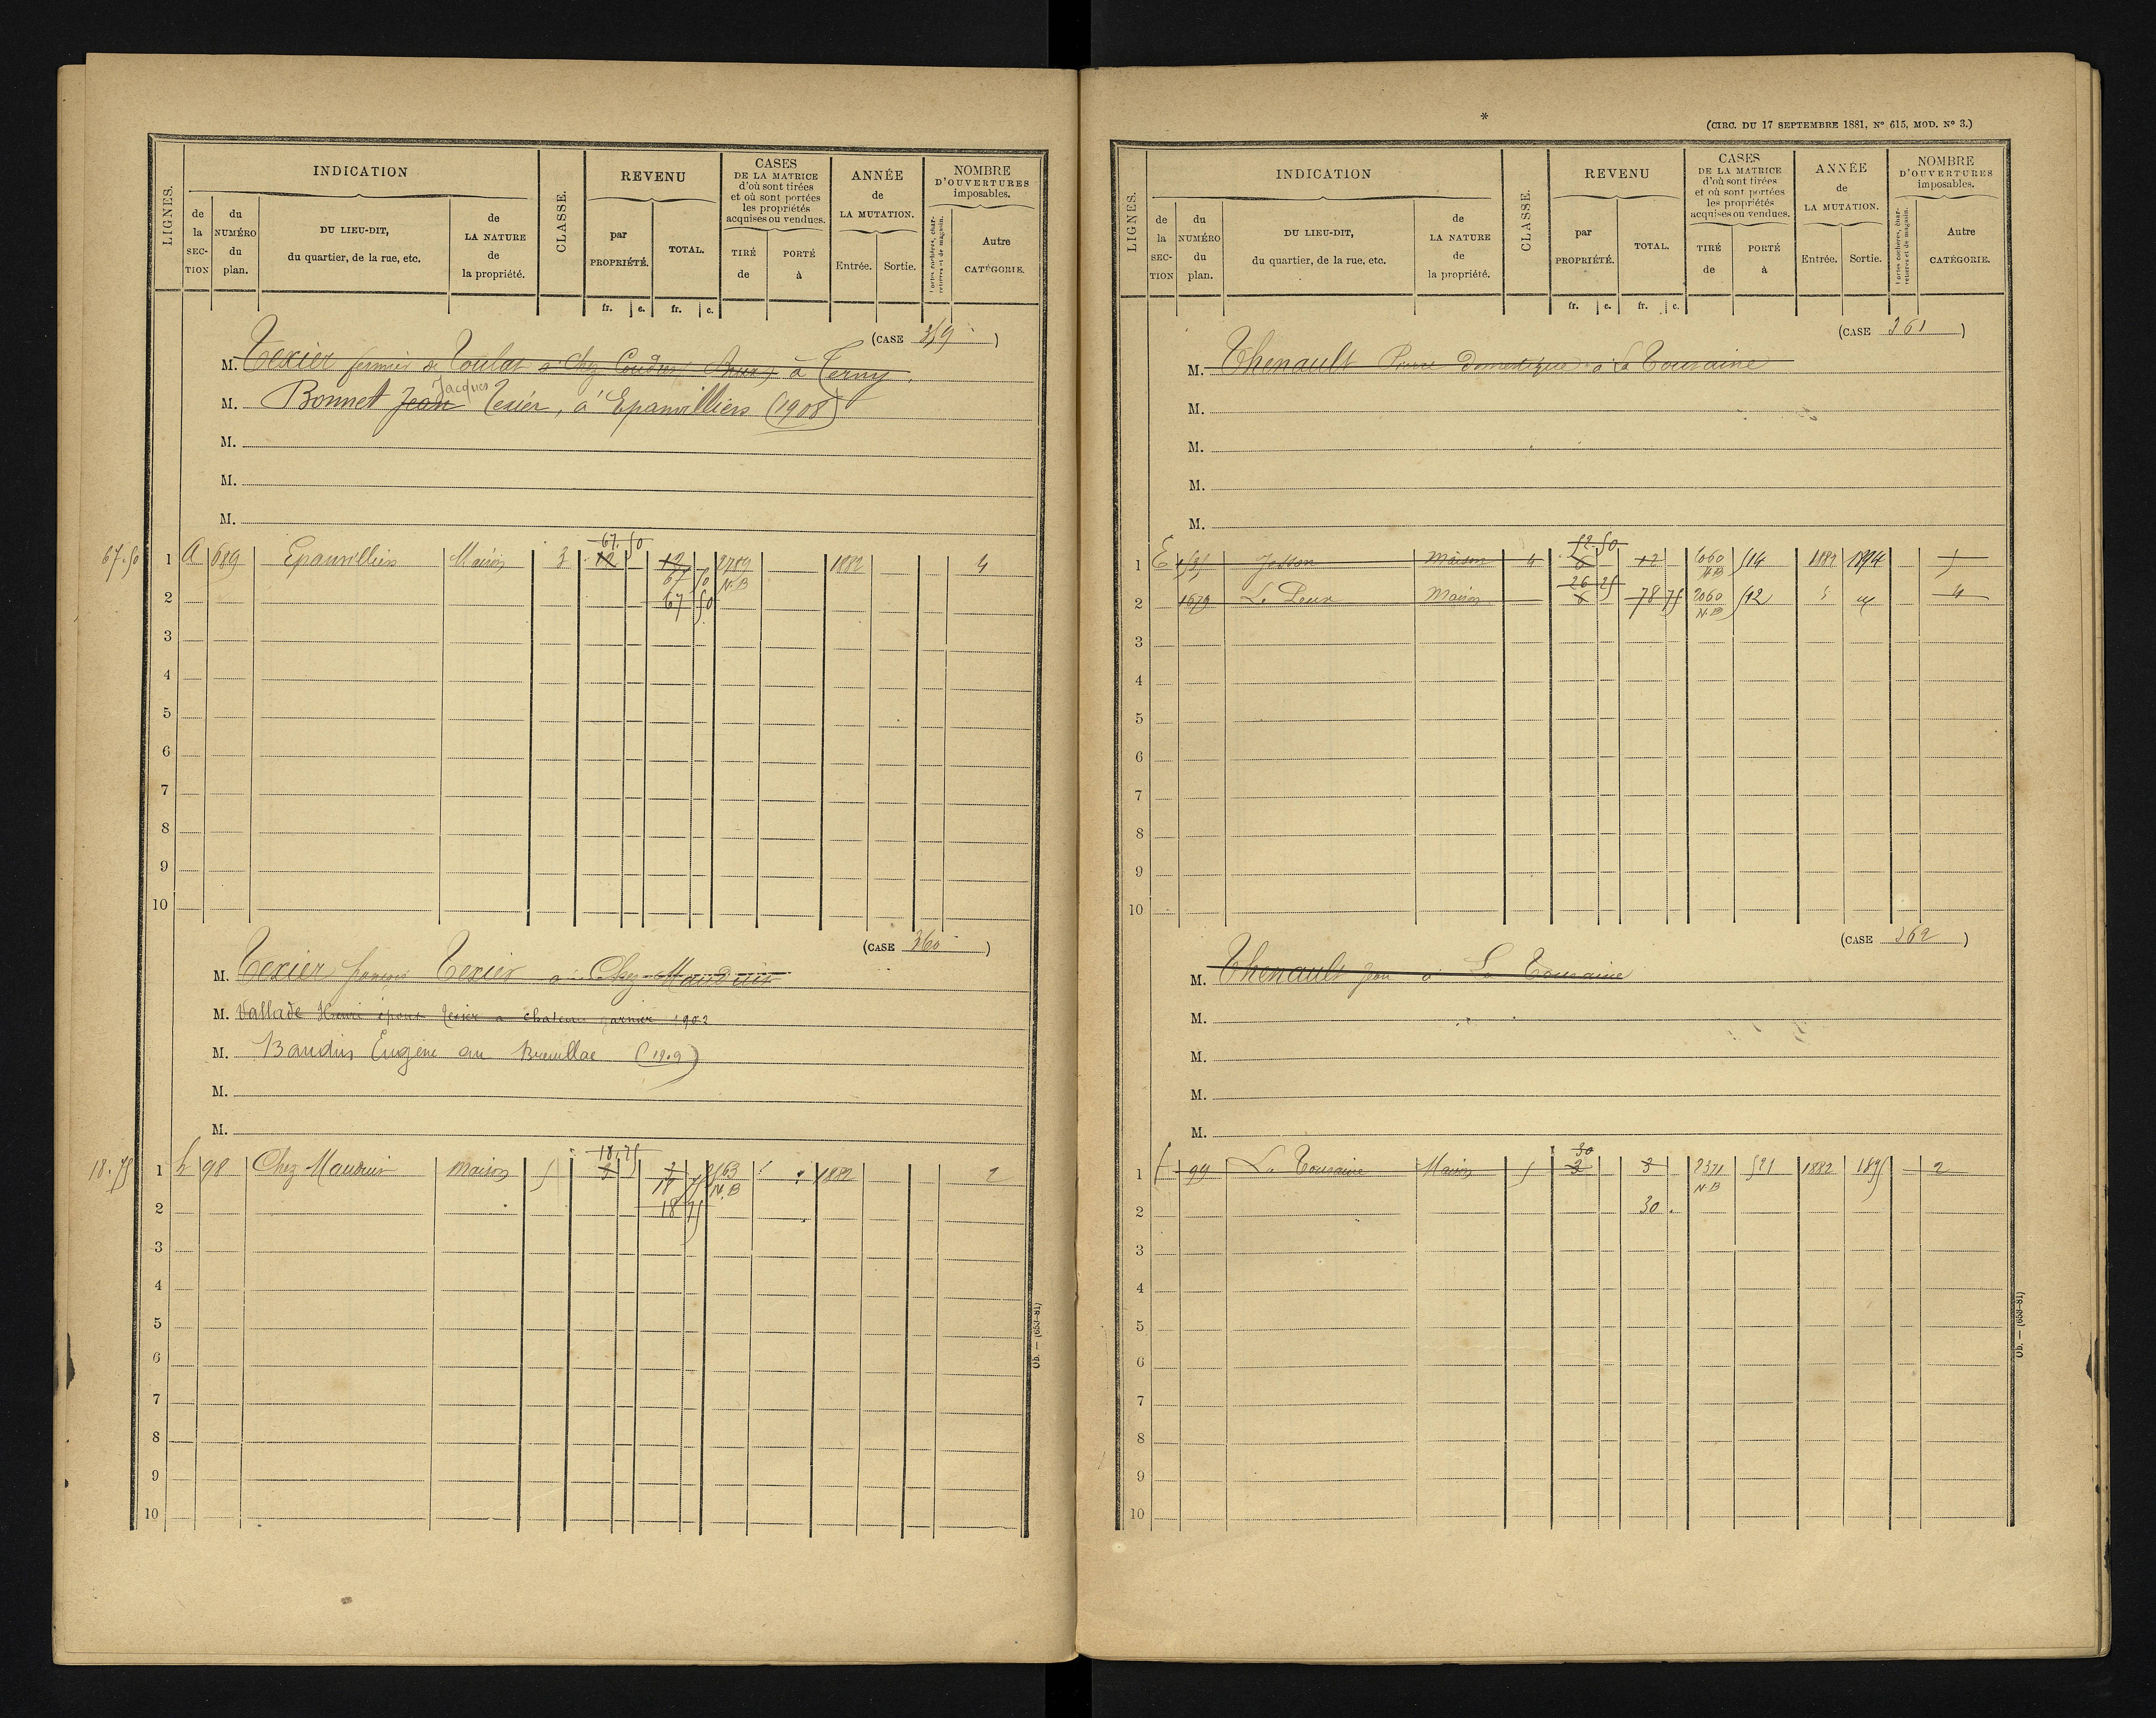 LIGNES.
INDICATION
de la SECTION
du NUMÉRO du plan.
DU LIEU-DIT, du quartier, de la rue, etc.
de LA NATURE de la propriété.
CLASSE.
REVENU
par PROPRIÉTÉ.
TOTAL.
fr. c. fr. c.
CASES DE LA MATRICE d'où sont tirées et où sont portées les propriétés acquises ou vendues.
TIRÉ de
PORTÉ à
ANNÉE de LA MUTATION.
Entrée. Sortie.
NOMBRE D'OUVERTURES imposables.
Portes cochères, charretières et de magasin.
Autre CATÉGORIE.
(CASE 359)
M. Texier fermier de Toulat à Chez Coudret à Terny.
M. Bonnet Jean Jacques Texier, à Epanvilliers (1908)
M.
M.
M.
67.50
67.50
1 A 689 Epanvilliers Maison 3 12 12 2789 1882 4
67 50 N.B
2 67 50
3
4
5
6
7
8
9
10
(CASE 360)
M. Texier françois Texier à Chez Mauduit
M. Vallade Henri époux Texier a chateau garnier 1902
M. Baudin Eugène au Breuillac (1909)
M.
M.
18.75
18,75
1 h 98 Chez Mauduit maison 5 3 3 2563 1882 2
18 75 N.B
2 18 75
3
4
5
6
7
8
9
10
Ob. — (653-81)
*
(CIRC. DU 17 SEPTEMBRE 1881, Nº 615, MOD. Nº 3.)
LIGNES.
INDICATION
de la SECTION
du NUMÉRO du plan.
DU LIEU-DIT, du quartier, de la rue, etc.
de LA NATURE de la propriété.
CLASSE.
REVENU
par PROPRIÉTÉ.
TOTAL.
fr. c. fr. c.
CASES DE LA MATRICE d'où sont tirées et où sont portées les propriétés acquises ou vendues.
TIRÉ de
PORTÉ à
ANNÉE de LA MUTATION.
Entrée. Sortie.
NOMBRE D'OUVERTURES imposables.
Portes cochères, charretières et de magasin.
Autre CATÉGORIE.
(CASE 361)
M. Thenault Pierre domestique à La Touraine
M.
M.
M.
M.
52.50
1 E Maison 4 6 12 2060 514 1882 1894 5
N.B
26 25
2 1679 Maison 6 78 75 2060 512 4
N.B
3
4
5
6
7
8
9
10
(CASE 362)
M. Thenault Jean à La Touraine
M.
M.
M.
M.
30
1 f 99 La Touraine Maison 5 3 3 2371 521 1882 1895 2
N.B
2 30
3
4
5
6
7
8
9
10
Ob. — (653-81)